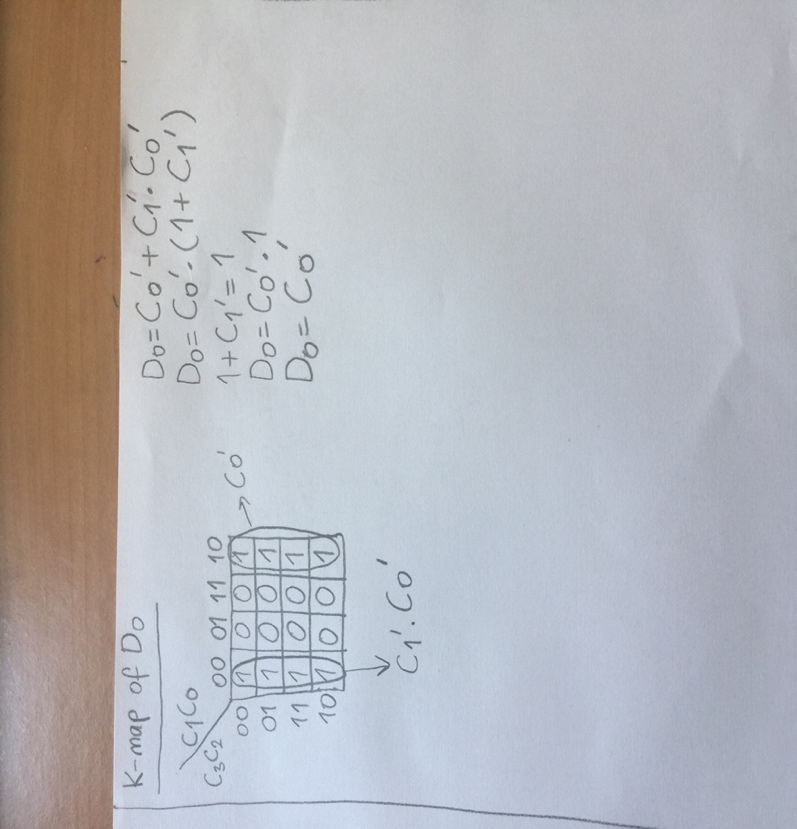 K-map of D0
C1C0
C3C2 00 01 11 10
00 1 0 0 1
01 1 0 0 1
11 1 0 0 1
10 1 0 0 1
→ C0'
C1'.C0'
D0=C0'+C1'.C0'
D0=C0'.(1+C1')
1+C1'=1
D0=C0'.1
D0=C0'